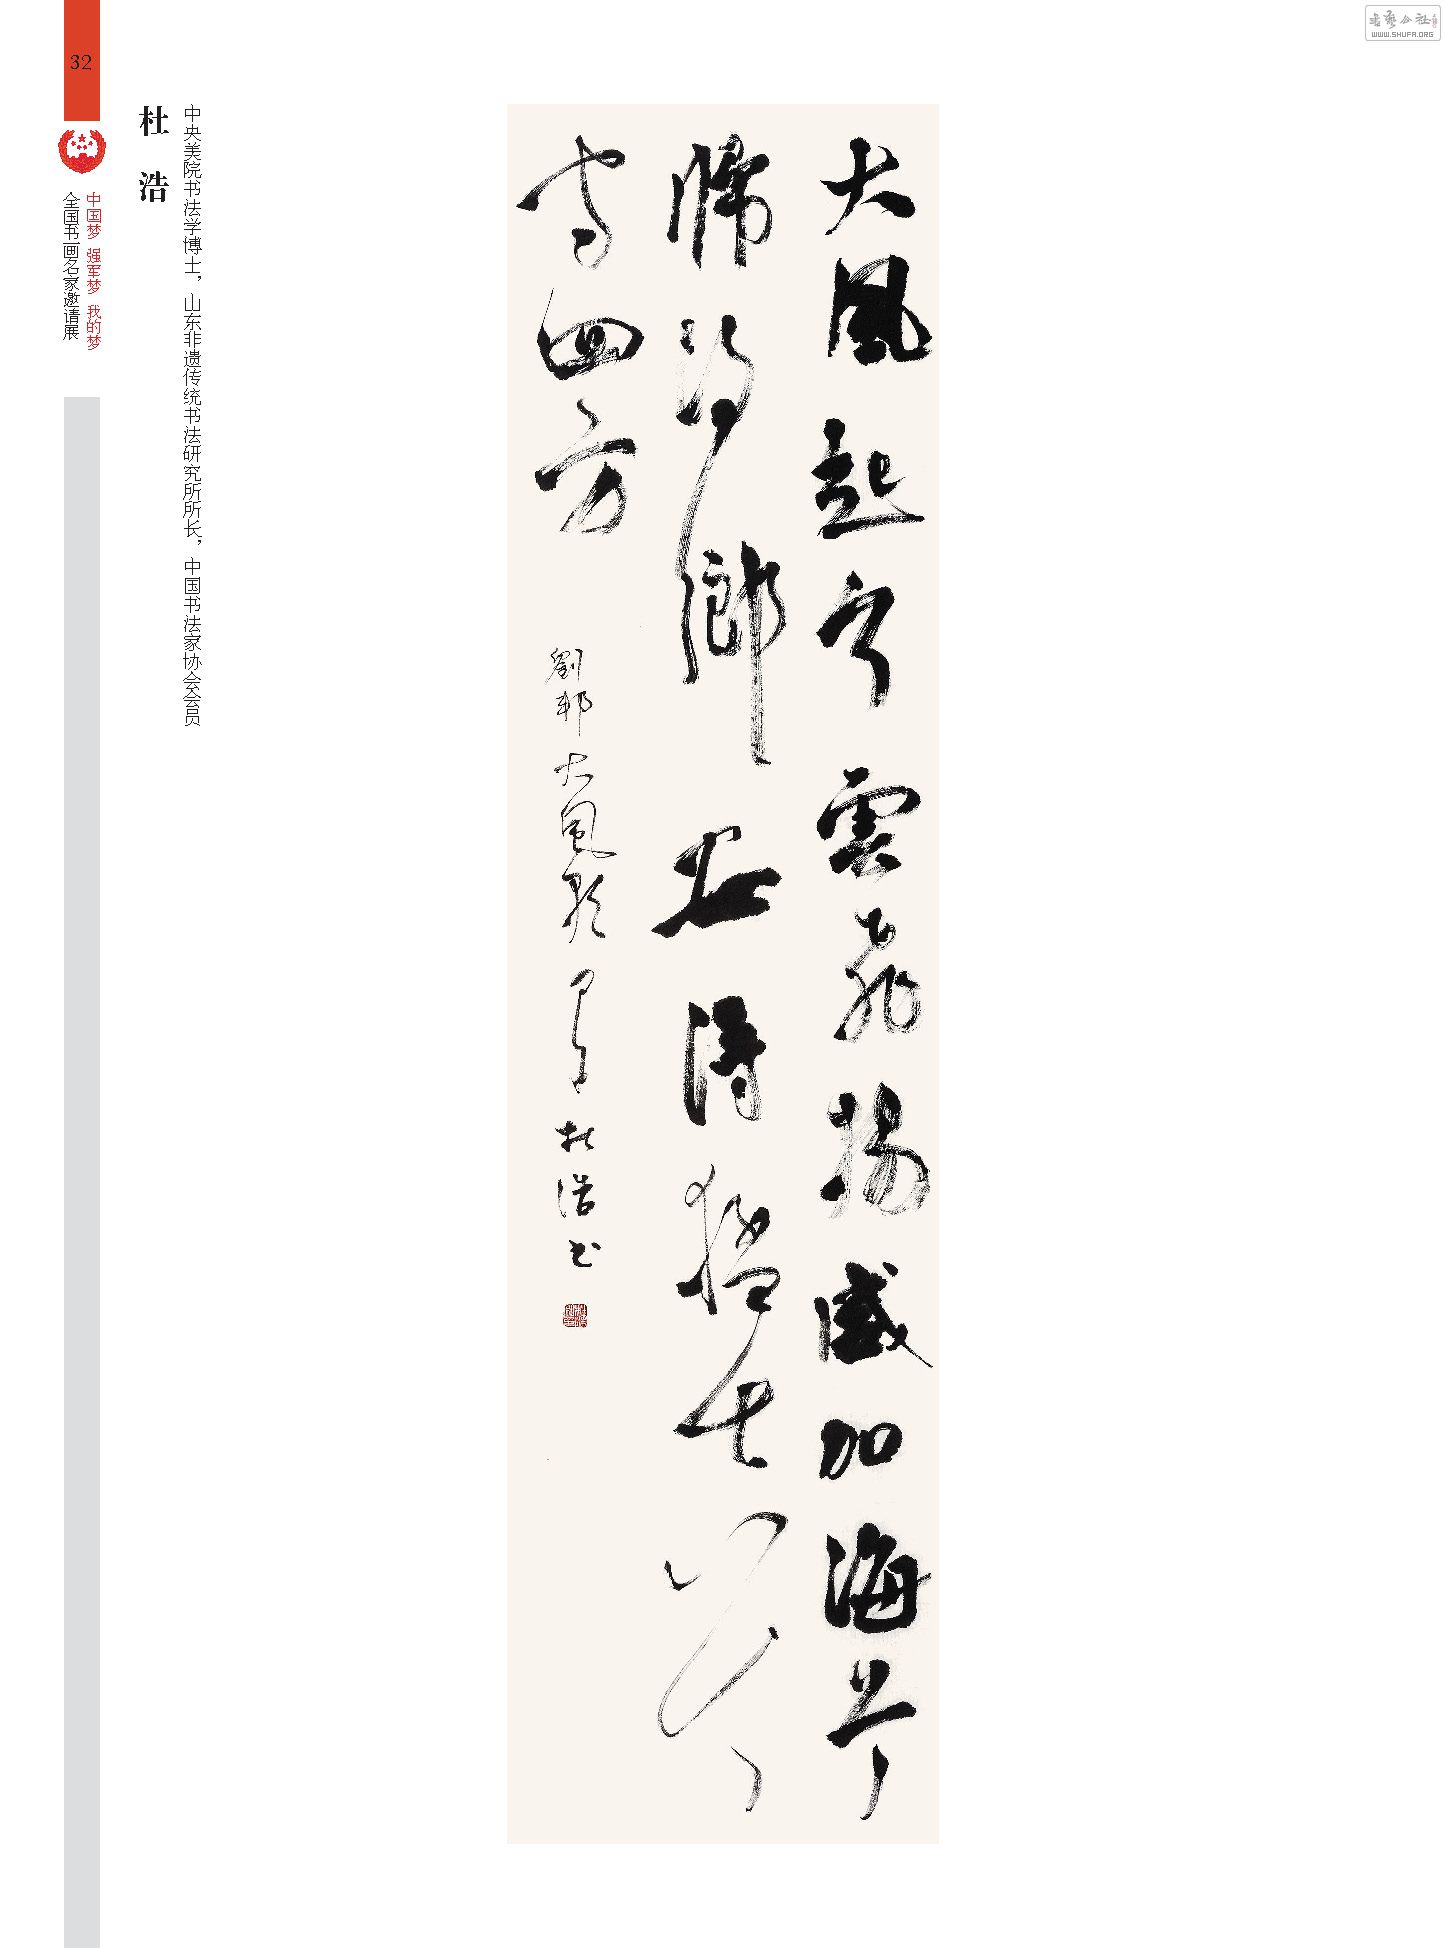 32
中国梦 强军梦 我的梦
全国书画名家邀请展
杜浩
中央美院书法学博士，山东非遗传统书法研究所所长，中国书法家协会会员
大風起兮雲飛揚威加海兮
歸鄉安得猛士兮
守四方
劉邦大風歌 杜浩书
书艺公社
WWW.SHUFA.ORG